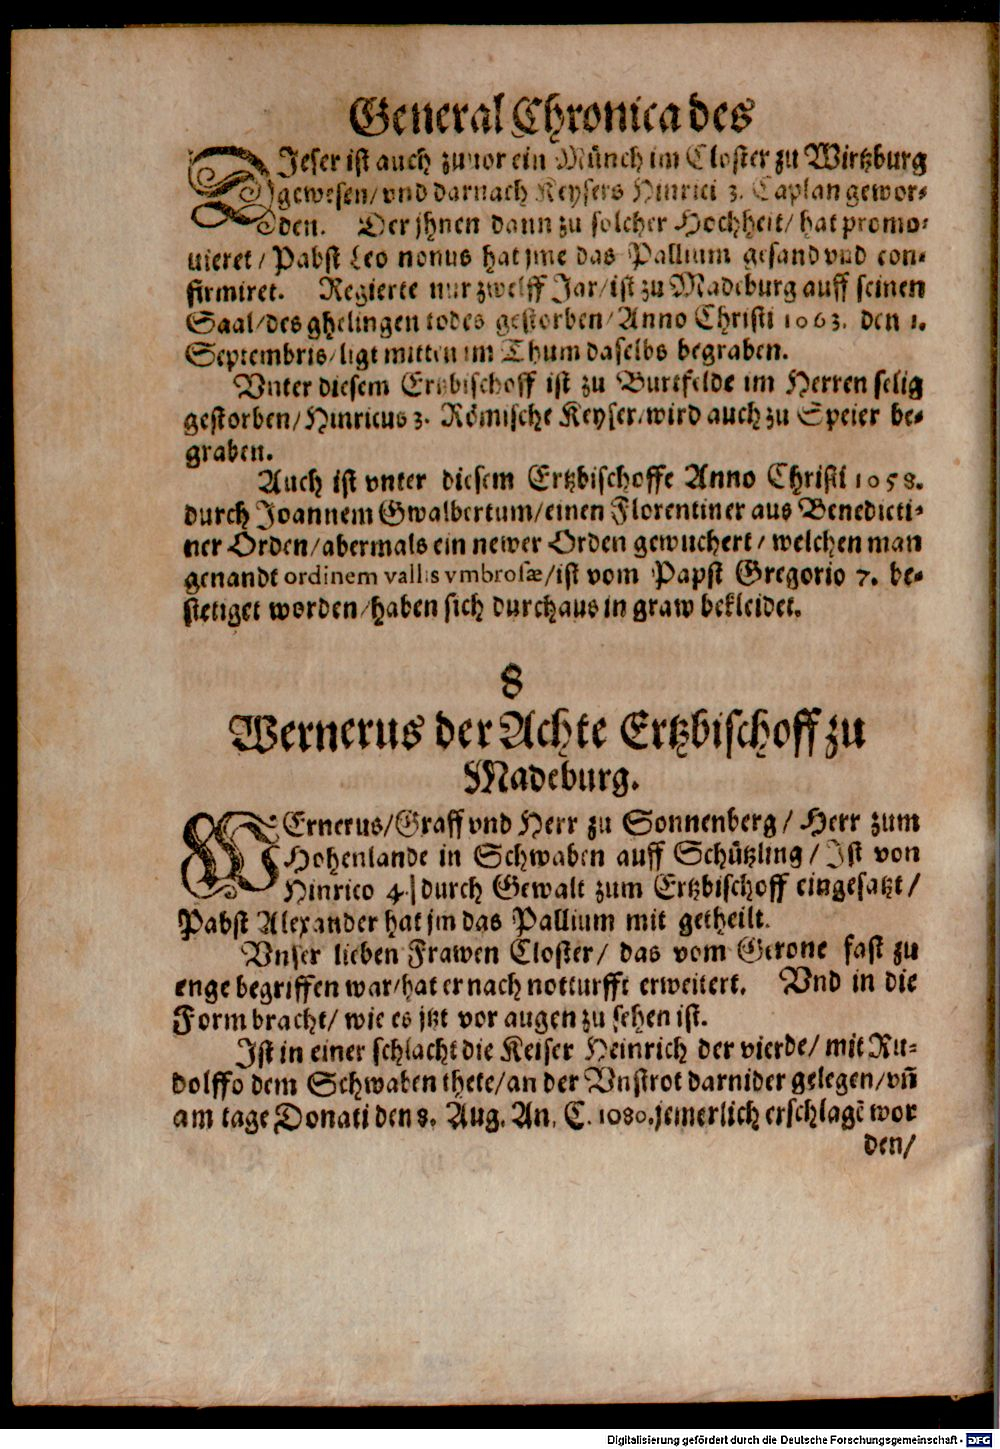 General Chronica des
DJeser ist auch zuuor ein Münch im Closter zu Wirtzburg
gewesen/ vnd darnach Keysers Hinrici 3. Caplan gewor-
den. Der jhnen dann zu solcher Hochheit/ hat promo-
uieret/ Pabst Leo nonus hat jme das Pallium gesand vnd con-
firmiret. Regierte nur zwelff Jar/ ist zu Madeburg auff seinen
Saal/ des ghelingen todes gestorben/ Anno Christi 1063. den 1.
Septembris/ ligt mitten im Thum daselbs begraben.
Vnter diesem Ertzbischoff ist zu Burtfelde im Herren selig
gestorben/ Hinricus 3. Römische Keyser/ wird auch zu Speier be-
graben.
Auch ist vnter diesem Ertzbischoffe Anno Christi 1058.
durch Joannem Gwalbertum/ einen Florentiner aus Benedicti-
ner Orden/ abermals ein newer Orden gewuchert/ welchen man
genandt ordinem vallis vmbrosæ/ ist vom Papst Gregorio 7. be-
stetiget worden/ haben sich durchaus in graw bekleidet.
8
Wernerus der Achte Ertzbischoff zu
Madeburg.
WErnerus/ Graff vnd Herr zu Sonnenberg/ Herr zum
Hohenlande in Schwaben auff Schützling/ Jst von
Hinrico 4./ durch Gewalt zum Ertzbischoff eingesatzt/
Pabst Alexander hat jm das Pallium mit getheilt.
Vnser lieben Frawen Closter/ das vom Gerone fast zu
enge begriffen war/ hat er nach notturfft erweitert. Vnd in die
Form bracht/ wie es jtzt vor augen zu sehen ist.
Jst in einer schlacht die Keiser Heinrich der vierde/ mit Ru-
dolffo dem Schwaben thete/ an der Vnstrot darnider gelegen/ vñ
am tage Donati den 8. Aug. An. C. 1080. jemerlich erschlagẽ wor
den/
Digitalisierung gefördert durch die Deutsche Forschungsgemeinschaft - DFG